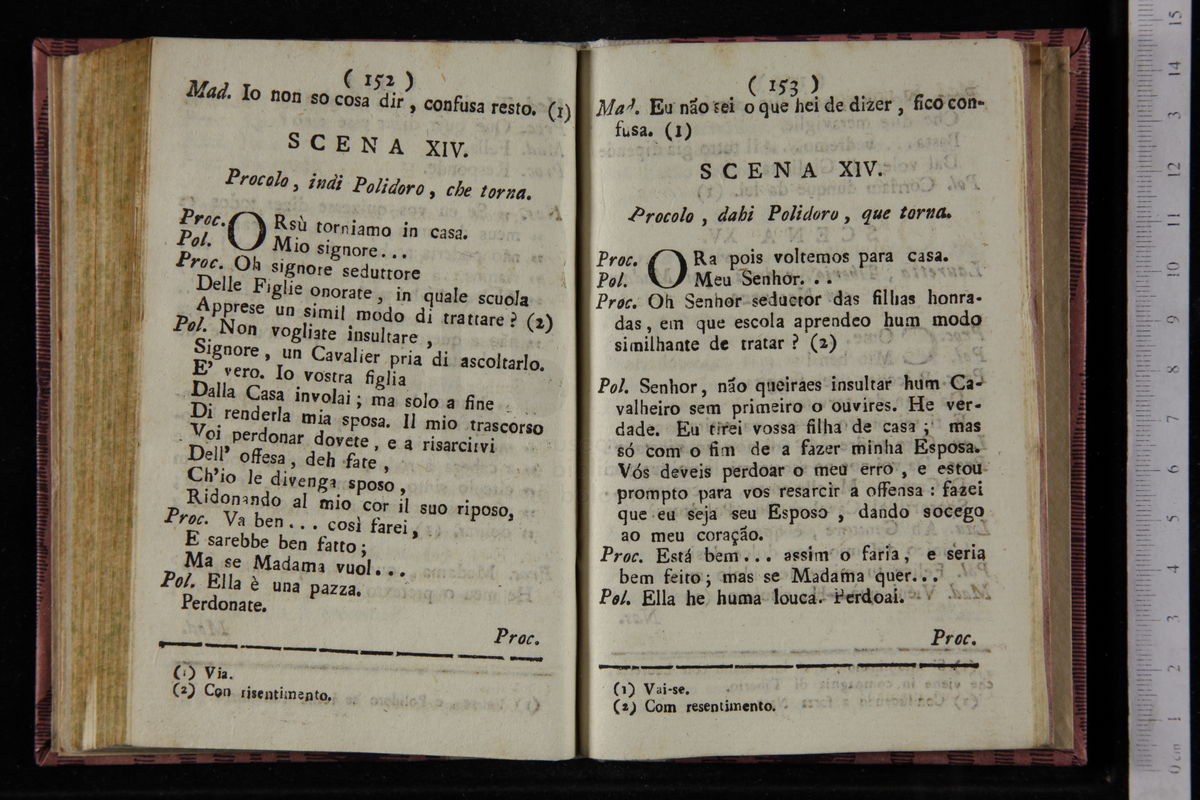 ( 152 )
Mad. Io non so cosa dir, confusa resto. (1)
SCENA XIV.
Procolo, indi Polidoro, che torna.
Proc. ORsù torniamo in casa.
Pol. Mio signore...
Proc. Oh signore seduttore
Delle Figlie onorate, in quale scuola
Apprese un simil modo di trattare? (2)
Pol. Non vogliate insultare,
Signore, un Cavalier pria di ascoltarlo.
E' vero. Io vostra figlia
Dalla Casa involai; ma solo a fine
Di renderla mia sposa. Il mio trascorso
Voi perdonar dovete, e a risarcirvi
Dell' offesa, deh fate,
Ch'io le divenga sposo,
Ridonando al mio cor il suo riposo,
Proc. Va ben... così farei,
E sarebbe ben fatto;
Ma se Madama vuol...
Pol. Ella è una pazza.
Perdonate.
Proc.
(1) Via.
(2) Con risentimento.
( 153 )
Mad. Eu não sei o que hei de dizer, fico con-
fusa. (1)
SCENA XIV.
Procolo, dahi Polidoro, que torna.
Proc. ORa pois voltemos para casa.
Pol. Meu Senhor...
Proc. Oh Senhor seductor das filhas honra-
das, em que escola aprendeo hum modo
similhante de tratar? (2)
Pol. Senhor, não queiraes insultar hum Ca-
valheiro sem primeiro o ouvires. He ver-
dade. Eu tirei vossa filha de casa; mas
só com o fim de a fazer minha Esposa.
Vós deveis perdoar o meu erro, e estou
prompto para vos resarcir a offensa: fazei
que eu seja seu Esposo, dando socego
ao meu coração.
Proc. Está bem... assim o faria, e seria
bem feito; mas se Madama quer...
Pol. Ella he huma louca. Perdoai.
Proc.
(1) Vai-se.
(2) Com resentimento.
0 cm 1 2 3 4 5 6 7 8 9 10 11 12 13 14 15